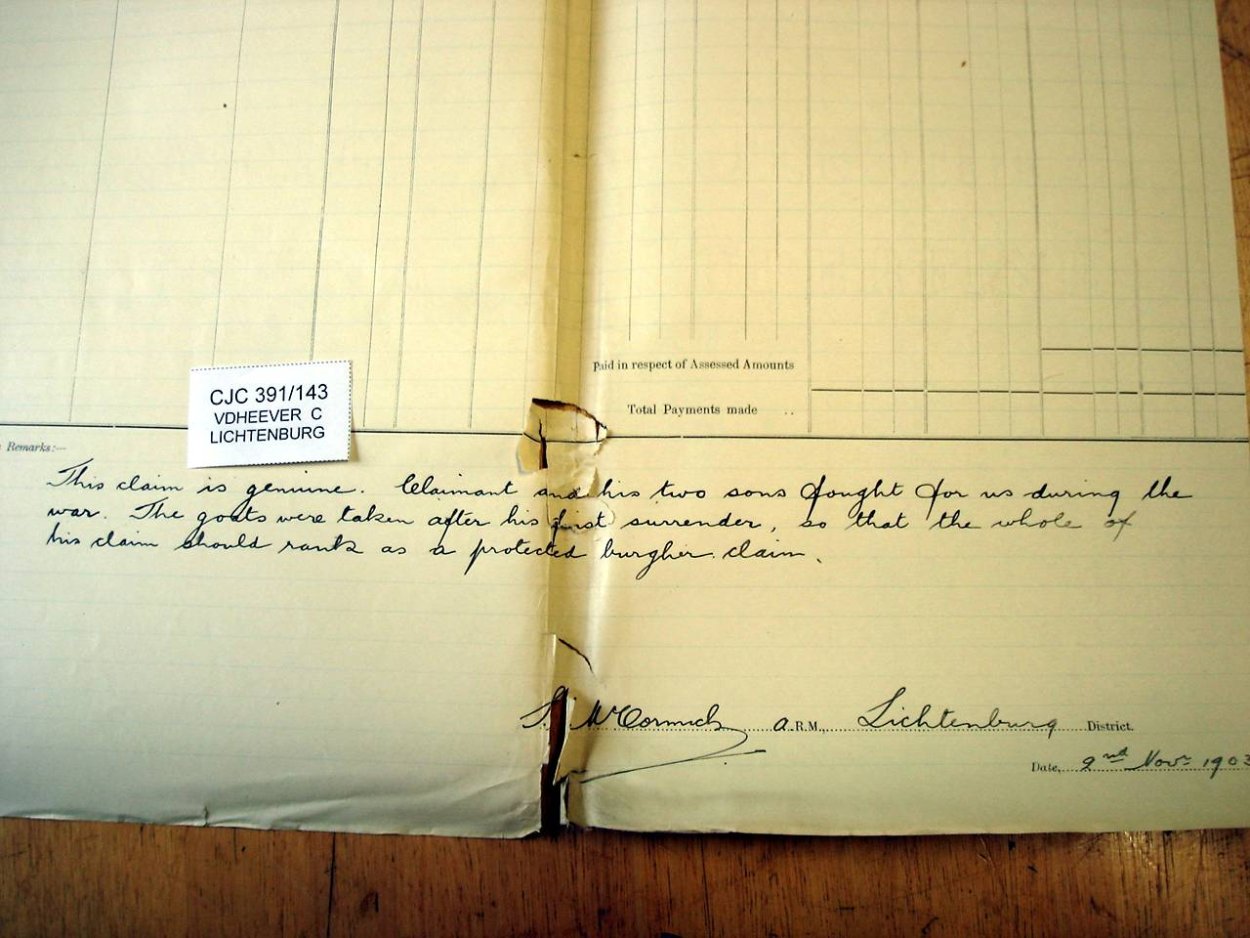 Paid in respect of Assessed Amounts
Total Payments made ..
CJC 391/143
VDHEEVER C
LICHTENBURG
Remarks:—
This claim is genuine. Claimant and his two sons fought for us during the
war. The goats were taken after his first surrender, so that the whole of
his claim should rank as a protected burgher claim.
McCormick A.R.M., Lichtenburg District.
Date, 2nd Nov. 1903